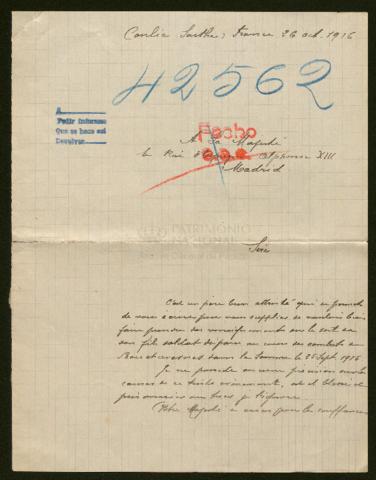 Conlie Sarthe, France 26 oct. 1916
42562
A
Pedir informes
Que se haga así
Devolver
Fecho
A Sa Majesté
le Roi d'Espagne Alphonse XIII
Madrid
PATRIMONIO
NACIONAL
Sire
C'est un père bien attristé qui se permet
de vous écrire pour vous supplier de vouloir bien
faire prendre des renseignements sur le sort de
son fils soldat disparu au cours des combats de
dans la Somme le 25 Sept. 1916
Je ne possède aucune précision sur les
causes de ce triste évènement, est-il blessé et
prisonnier ou tué je l'ignore.
Votre Majesté a